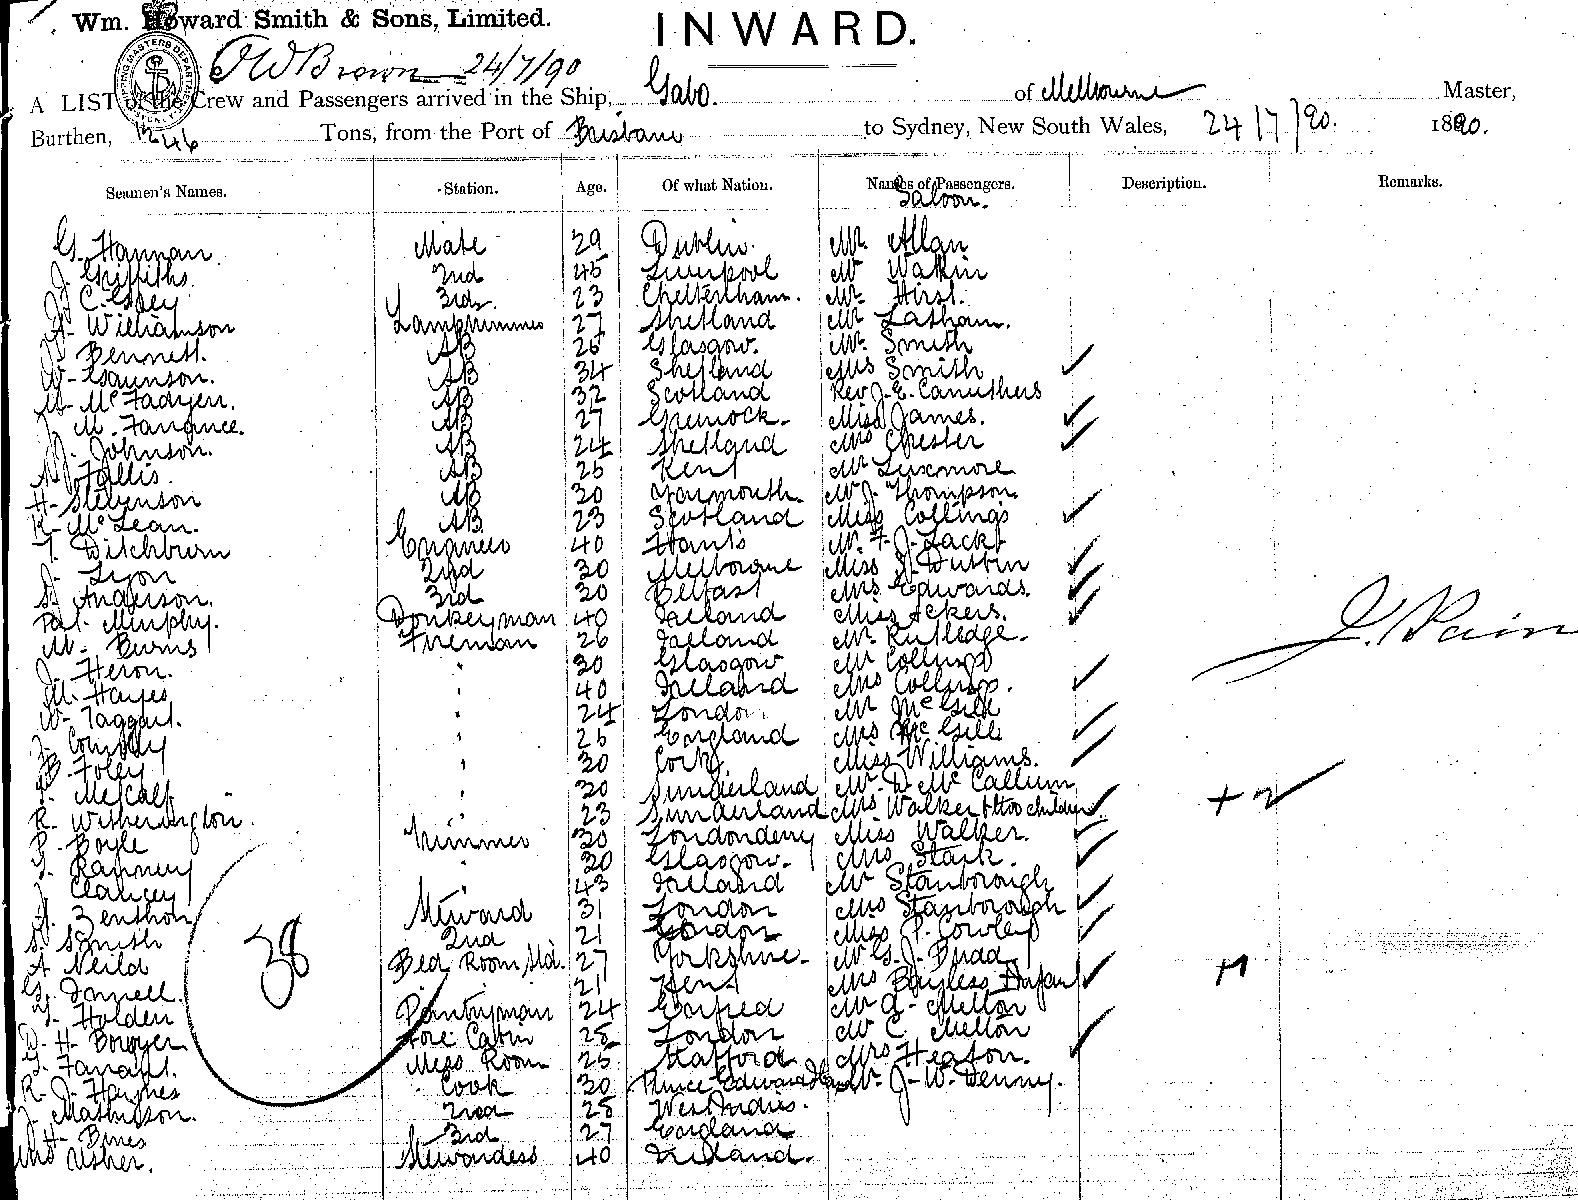 Wm. Howard Smith & Sons, Limited.
INWARD.
24/7/90
A LIST of the Crew and Passengers arrived in the Ship, Gabo. of Melbourne Master,
Burthen, 1246 Tons, from the Port of Brisbane to Sydney, New South Wales, 24/7/90. 1890.
Seamen's Names. Station. Age. Of what Nation. Names of Passengers. Description. Remarks.
Saloon.
G. Hannan Mate 29 Dublin. Mr. Allan
J. Griffiths. 2nd 45 Liverpool Mr Wakin
3rd. 23 Cheltenham. Mr. Hirst.
A. Williamson Lamptrimmer 27 Shetland Mr Latham.
J. Bennett. AB 26 Glasgow. Mr. Smith
W. Gaunson. AB 34 Shetland Mrs Smith
M. McFadyen. AB 32 Scotland Rev J. E. Carruthers
M. Farrance. AB 27 Greenock. Miss James.
J. Johnson. AB 24 Shetland Mrs Chester
Follis. AB 25 Kent Mr Luxmore
H. Stevenson AB 20 Yarmouth. Mr J. Thompson
K. McLean. AB 23 Scotland Miss Collings
T. Ditchburn Engineer 40 Hants Mr. F. J. Lack
J. Lyon 2nd 30 Melbourne Miss J. Dustin
S. Anderson. 3rd 30 Belfast Mrs. Edwards.
Pat. Murphy. Donkeyman 40 Ireland Miss Ackers.
M. Burns Fireman 26 Ireland Mr. Rutledge.
J. Heron. " 30 Glasgow Mr Collings
M. Hayes " 40 Ireland Mrs Collings.
W. Taggart. " 24 London Mr McGill
J. Connolly " 25 England Mrs McGill
B. Foley " 30 Cork Miss Williams.
Metcalf " 30 Sunderland Mr. D. McCallum
R. Witherington. " 23 Sunderland Mrs. Walker & two children + 2
P. Boyle Trimmer 30 Londonderry Miss Walker.
" 30 Glasgow. Mrs Stark.
Clancey " 43 Ireland Mr Stanborough
A. Zenthon Steward 31 London Mrs Stanborough
S. Smith 2nd 21 London Miss P. Cowley
A Neild Bed Room Std. 27 Yorkshire. Mr G. J. Budd
21 Kent Mrs Bayless Infant +1
Holden Pantryman 24 Mr G. Mellor
W. H. Bowyer Fore Cabin 25 London Mr C. Mellor
Farrant. Mess Room 25 Stafford Mrs Heaton.
R. J. Haynes Cook 30 Prince Edward Mr. J. W. Denny.
J. Mathieson. 2nd 25 West Indies.
H. Bines 3rd 27 England
Mrs Usher. Stewardess 40 Ireland.
38